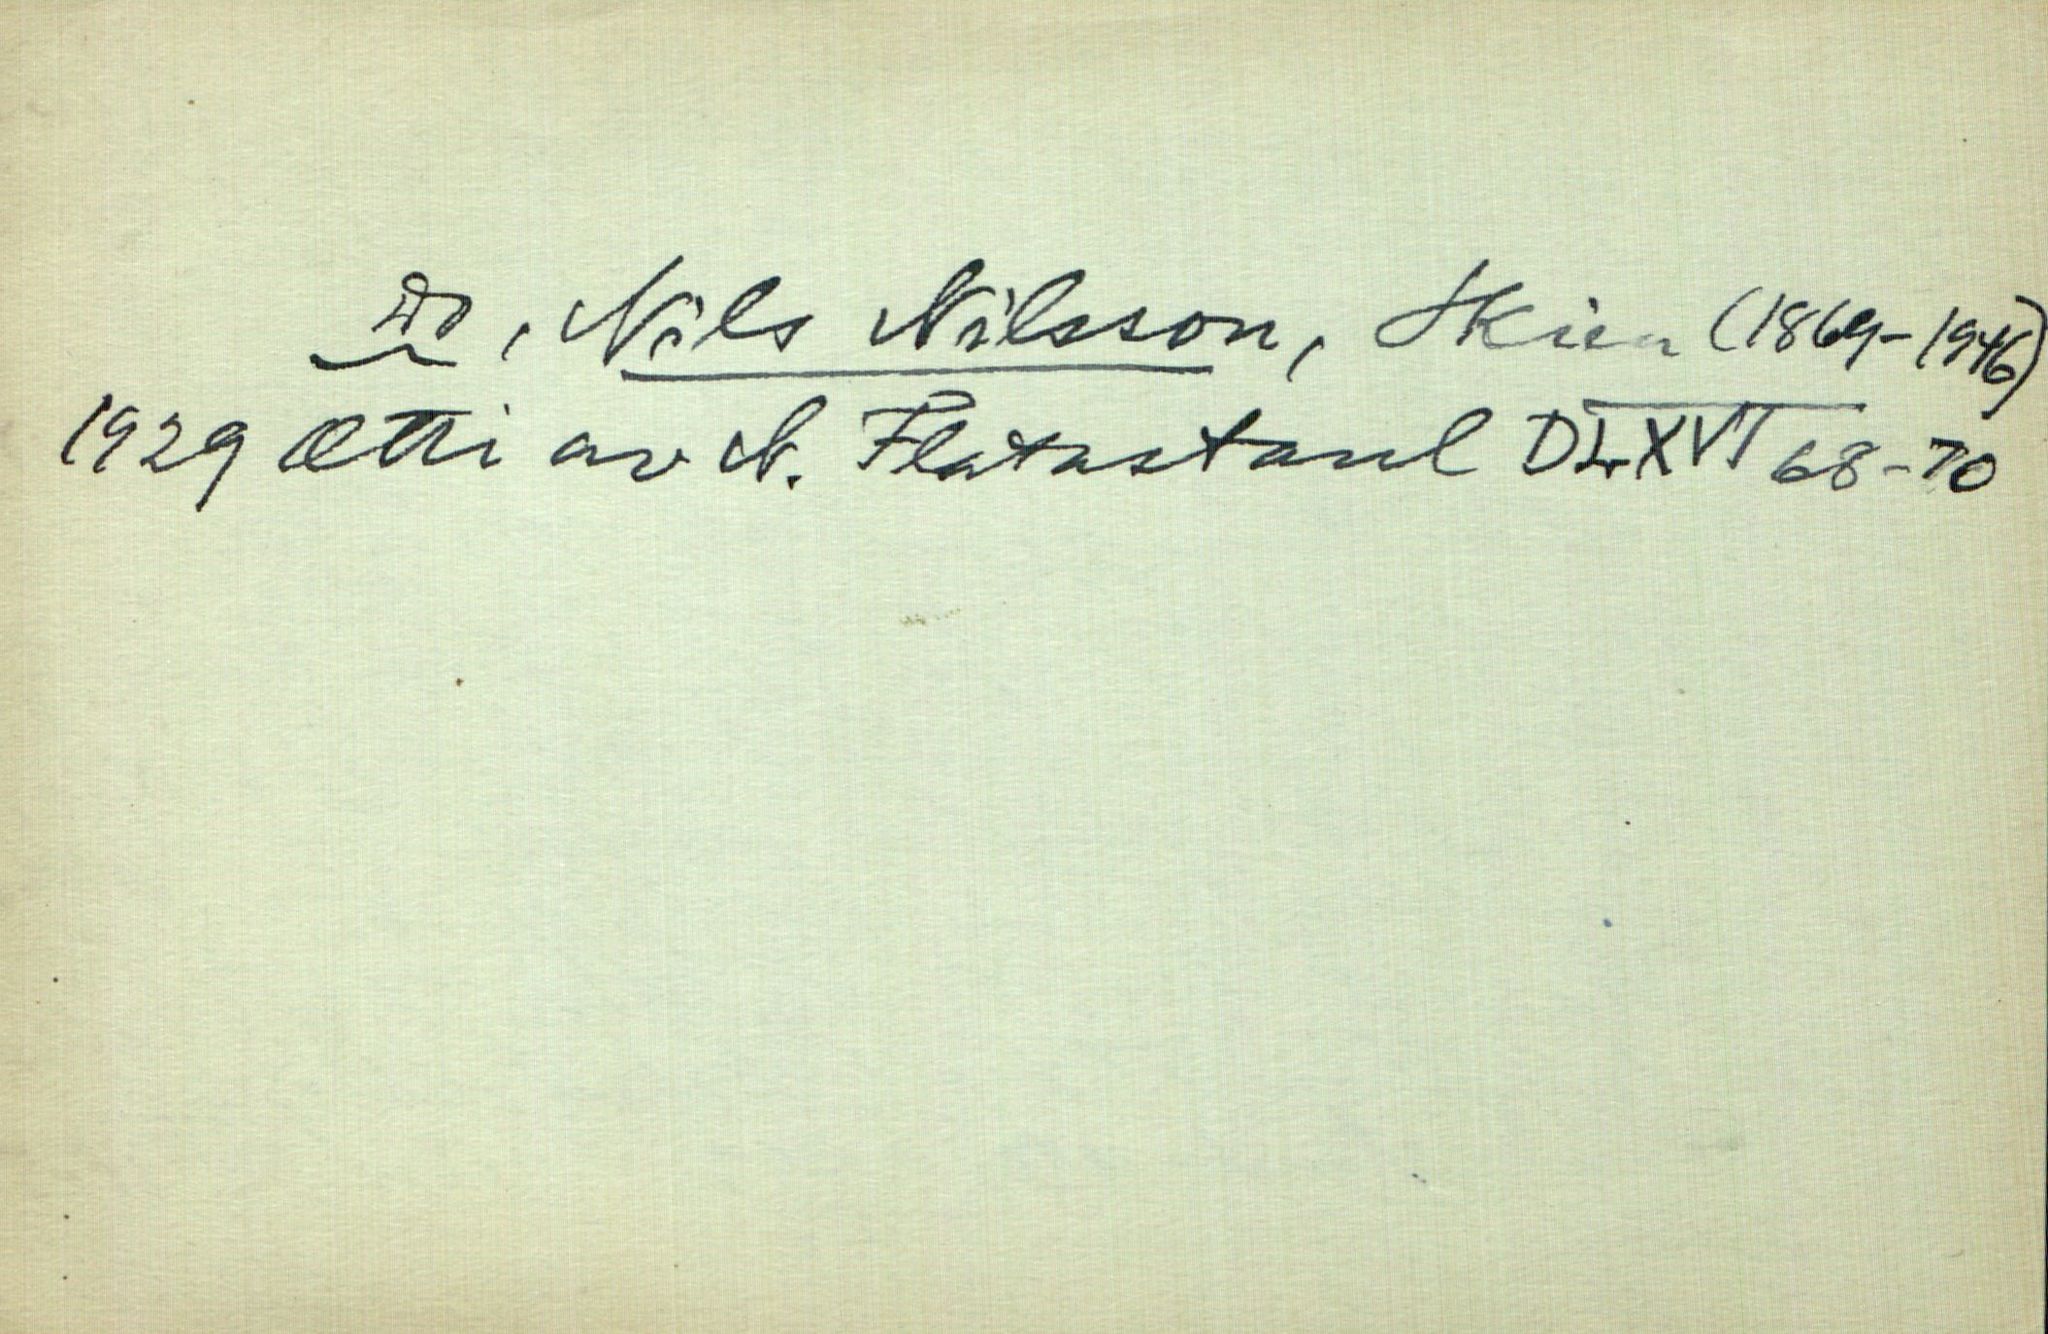 Do, Nils Nilsson, Skien (1869-1946)
1929 Etti av N. Flatastaul DLXVI 68-70